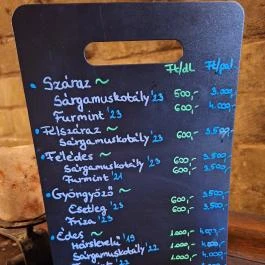 Ft/dl Ft/pal
• Száraz ~
Sárgamuskotály '23 500,- 3.000,-
Furmint '23 600,- 4.000,-
• Félszáraz ~
Sárgamuskotály '23 600,- 3.500,-
• Félédes ~
Sárgamuskotály '23 600,- 3.500,-
Furmint '21 600,- 3.500,-
• Gyöngyöző ~
Esetleg '23 600,- 3.500,-
Friza '23 600,- 3.500,-
• Édes ~
Hárslevelű '19 1.000,-
Sárgamuskotály '22 1.000,- 4.000,-
Furmint '23 1.000,- 4.000,-